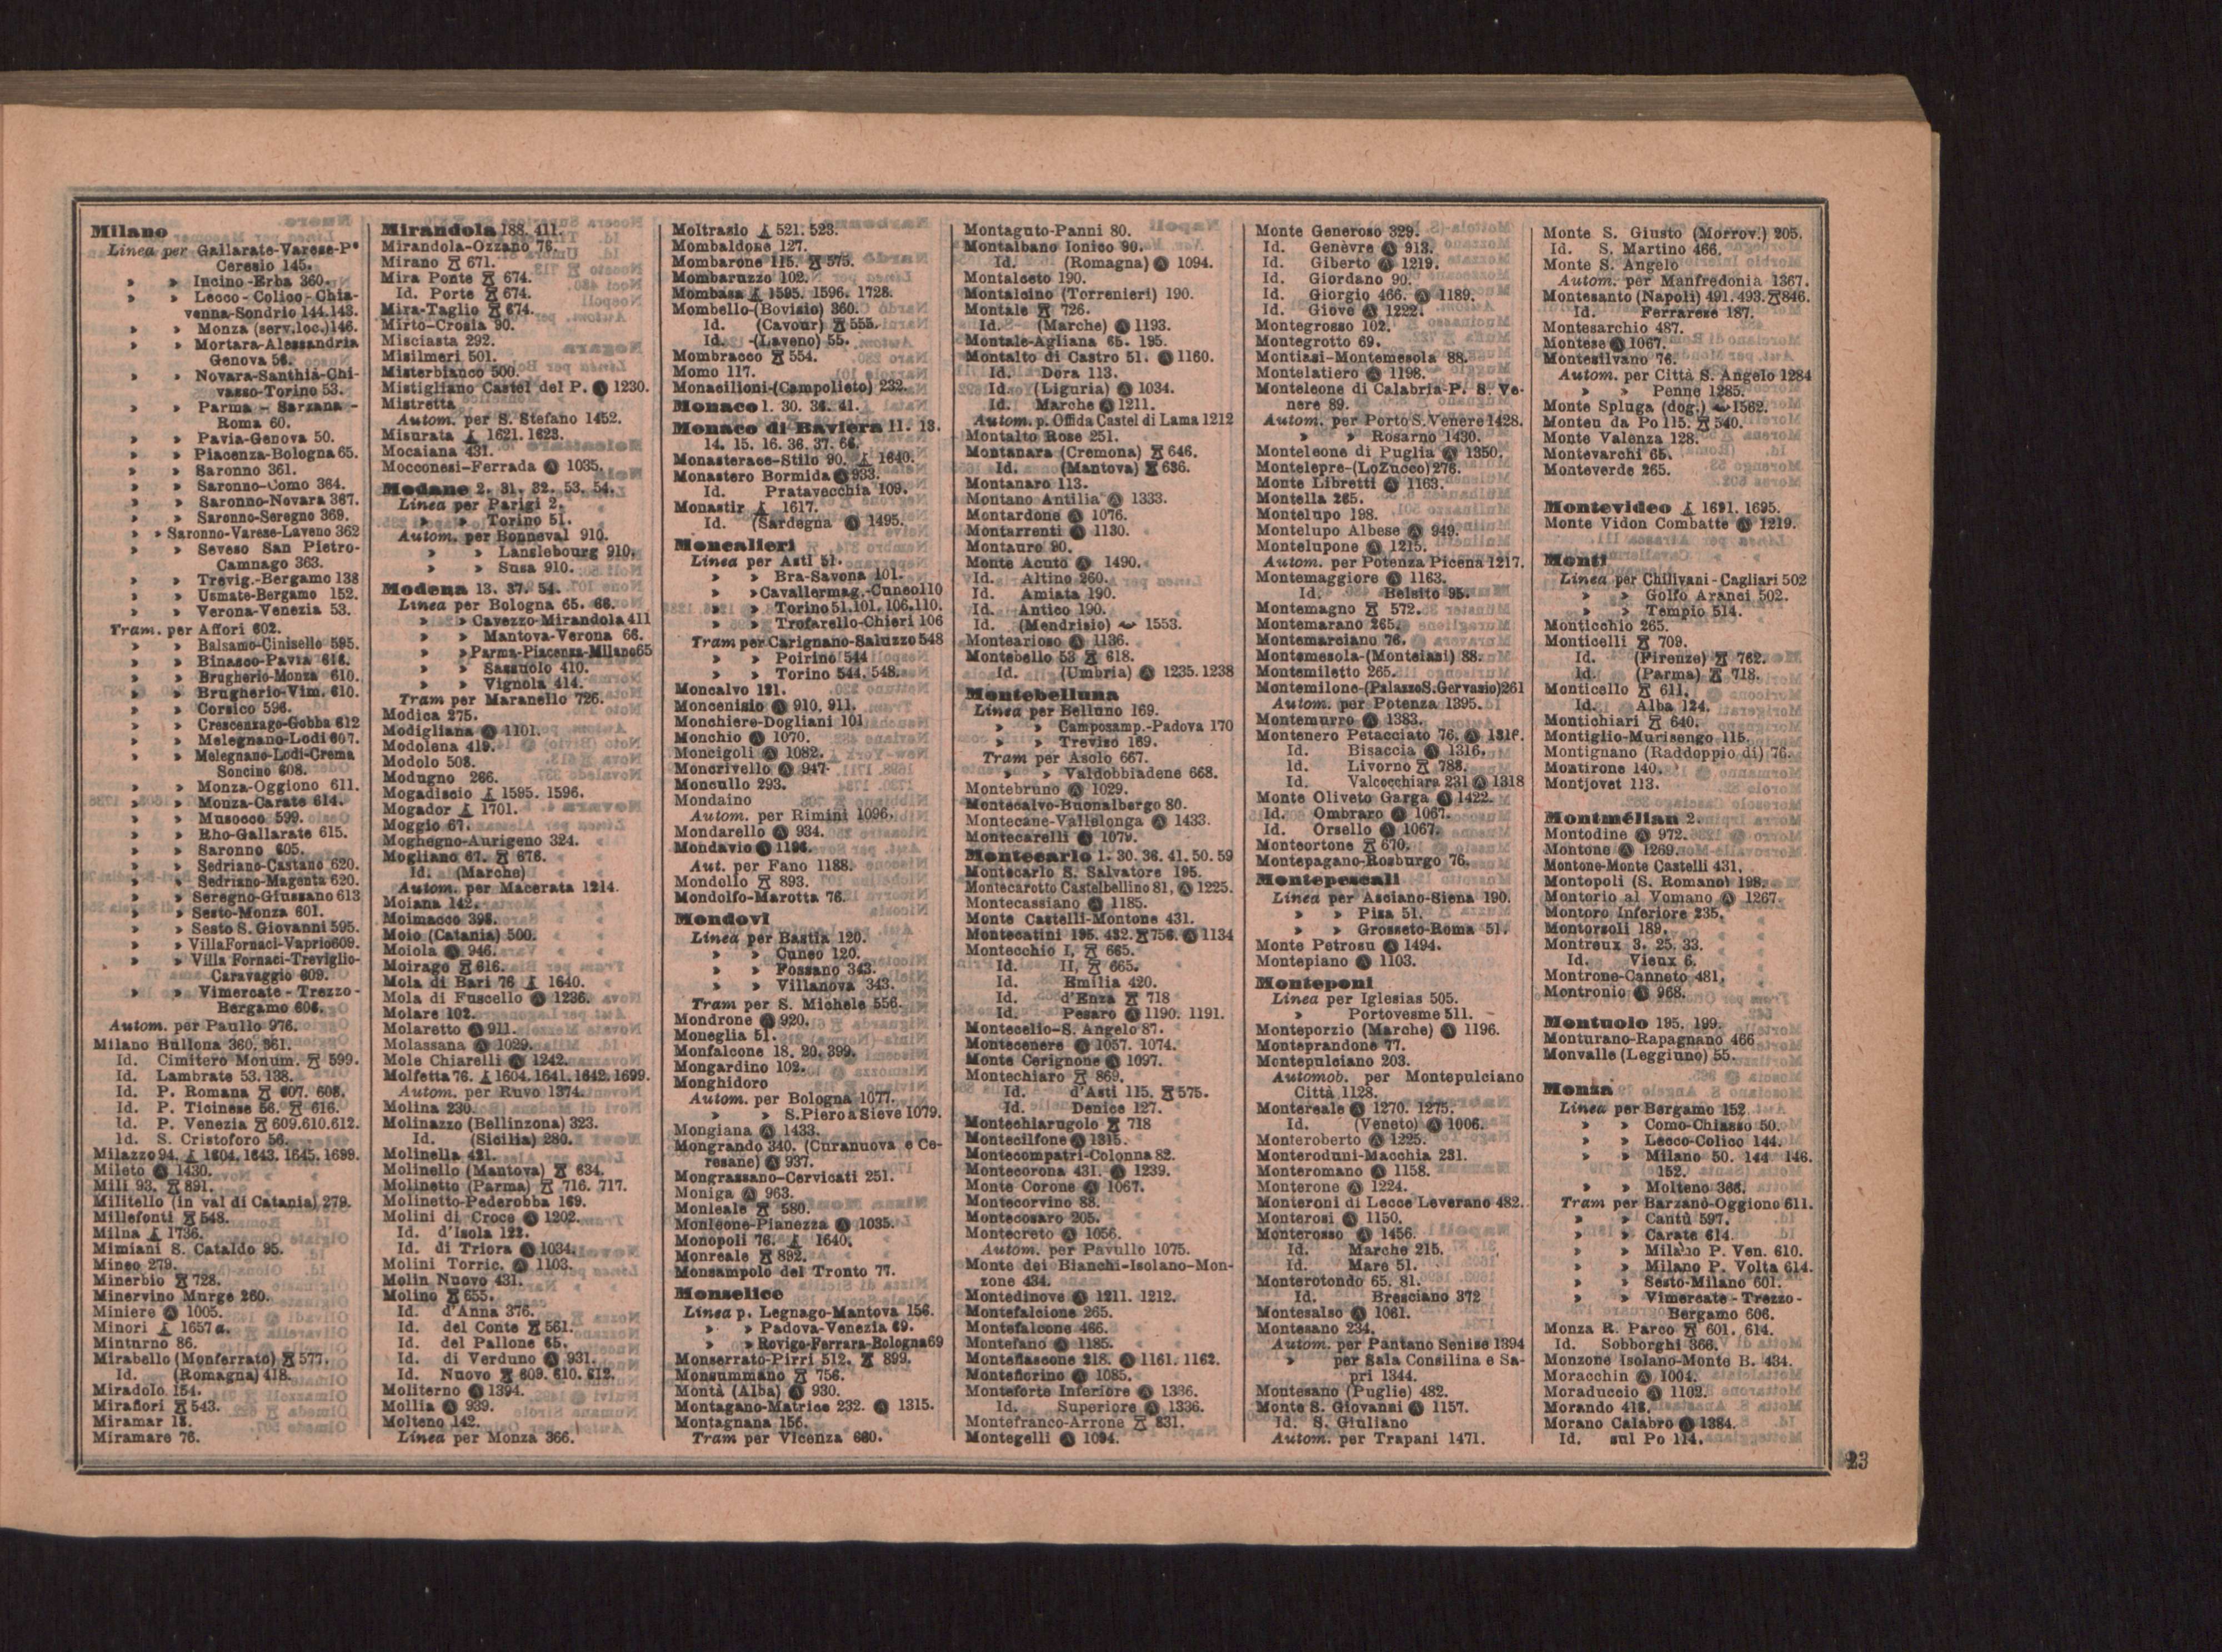 Milano
Linea per Gallarate-Varese-Pº
Ceresio 145.
» » Incino-Erba 360.
» » Lecco-Colico-Chia-
venna-Sondrio 144.143.
» » Monza (serv.loc.) 146.
» » Mortara-Alessandria
Genova 56.
» » Novara-Santhià-Chi-
vasso-Torino 53.
» » Parma - Sarzana -
Roma 60.
» » Pavia-Genova 50.
» » Piacenza-Bologna 65.
» » Saronno 361.
» » Saronno-Como 364.
» » Saronno-Novara 367.
» » Saronno-Seregno 369.
» » Saronno-Varese-Laveno 362
» » Seveso San Pietro-
Camnago 363.
» » Trevig.-Bergamo 138
» » Usmate-Bergamo 152.
» » Verona-Venezia 53.
Tram. per Affori 602.
» » Balsamo-Cinisello 595.
» » Binasco-Pavia 616.
» » Brugherio-Monza 610.
» » Brugherio-Vim. 610.
» » Corsico 596.
» » Crescenzago-Gobba 612
» » Melegnano-Lodi 607.
» » Melegnano-Lodi-Crema
Soncino 608.
» » Monza-Oggiono 611.
» » Monza-Carate 614.
» » Musocco 599.
» » Rho-Gallarate 615.
» » Saronno 605.
» » Sedriano-Castano 620.
» » Sedriano-Magenta 620.
» » Seregno-Giussano 613
» » Sesto-Monza 601.
» » Sesto S. Giovanni 595.
» » Villa Fornaci-Vaprio 609.
» » Villa Fornaci-Treviglio-
Caravaggio 609.
» » Vimercate-Trezzo-
Bergamo 606.
Autom. per Paullo 976.
Milano Bullona 360. 361.
Id. Cimitero Monum. 599.
Id. Lambrate 53. 138.
Id. P. Romana 607. 608.
Id. P. Ticinese 56. 616.
Id. P. Venezia 609.610.612.
Id. S. Cristoforo 56.
Milazzo 94. 1604. 1643. 1645. 1699.
Mileto 1430.
Mili 93. 891.
Militello (in val di Catania) 279.
Millefonti 548.
Milna 1736.
Mimiani S. Cataldo 95.
Mineo 279.
Minerbio 728.
Minervino Murge 260.
Miniere 1005.
Minori 1657 a.
Minturno 86.
Mirabello (Monferrato) 577.
Id. (Romagna) 418.
Miradolo 154.
Mirafiori 543.
Miramar 18.
Miramare 76.
Mirandola 188. 411.
Mirandola-Ozzano 76.
Mirano 671.
Mira Ponte 674.
Id. Porte 674.
Mira-Taglio 674.
Mirto-Crosia 90.
Misciasta 292.
Misilmeri 501.
Misterbianco 500.
Mistigliano Castel del P. 1230.
Mistretta
Autom. per S. Stefano 1452.
Misurata 1621. 1623.
Mocaiana 431.
Mocconesi-Ferrada 1035.
Modane 2. 31. 32. 53. 54.
Linea per Parigi 2.
» » Torino 51.
Autom. per Bonneval 910.
» » Lanslebourg 910.
» » Susa 910.
Modena 13. 37. 54.
Linea per Bologna 65. 66.
» » Cavezzo-Mirandola 411
» » Mantova-Verona 66.
» » Parma-Piacenza-Milano 65
» » Sassuolo 410.
» » Vignola 414.
Tram per Maranello 726.
Modica 275.
Modigliana 1101.
Modolena 419.
Modolo 508.
Modugno 266.
Mogadiscio 1595. 1596.
Mogador 1701.
Moggio 67.
Moghegno-Aurigeno 324.
Mogliano 67. 676.
Id. (Marche)
Autom. per Macerata 1214.
Moiana 142.
Moimacco 398.
Moio (Catania) 500.
Moiola 946.
Moirago 616.
Mola di Bari 76 1640.
Mola di Fuscello 1236.
Molare 102.
Molaretto 911.
Molassana 1029.
Mole Chiarelli 1242.
Molfetta 76. 1604. 1641. 1642. 1699.
Autom. per Ruvo 1374.
Molina 230.
Molinazzo (Bellinzona) 323.
Id. (Sicilia) 280.
Molinella 421.
Molinello (Mantova) 634.
Molinetto (Parma) 716. 717.
Molinetto-Pederobba 169.
Molini di Croce 1202.
Id. d'Isola 122.
Id. di Triora 1034.
Molini Torric. 1103.
Molin Nuovo 431.
Molino 655.
Id. d'Anna 376.
Id. del Conte 561.
Id. del Pallone 65.
Id. di Verduno 931.
Id. Nuovo 609. 610. 612.
Moliterno 1394.
Mollia 939.
Molteno 142.
Linea per Monza 366.
Moltrasio 521. 523.
Mombaldone 127.
Mombarone 115. 575.
Mombaruzzo 102.
Mombasa 1595. 1596. 1728.
Mombello-(Bovisio) 360.
Id. (Cavour) 555.
Id. -(Laveno) 55.
Mombracco 554.
Momo 117.
Monacilioni-(Campolieto) 232.
Monaco 1. 30. 36. 41.
Monaco di Baviera 11. 13.
14. 15. 16. 36. 37. 66.
Monasterace-Stilo 90. 1640.
Monastero Bormida 933.
Id. Pratavecchia 109.
Monastir 1617.
Id. (Sardegna 1495.
Moncalieri
Linea per Asti 51.
» » Bra-Savona 101.
» » Cavallermag.-Cuneo 110
» » Torino 51. 101. 106. 110.
» » Trofarello-Chieri 106
Tram per Carignano-Saluzzo 548
» » Poirino 544
» » Torino 544. 548.
Moncalvo 121.
Moncenisio 910. 911.
Monchiere-Dogliani 101
Monchio 1070.
Moncigoli 1082.
Moncrivello 947
Moncullo 293.
Mondaino
Autom. per Rimini 1096.
Mondarello 934.
Mondavio 1196.
Aut. per Fano 1188.
Mondello 893.
Mondolfo-Marotta 76.
Mondovì
Linea per Bastia 120.
» » Cuneo 120.
» » Fossano 343.
» » Villanova 343.
Tram per S. Michele 556.
Mondrone 920.
Moneglia 51.
Monfalcone 18. 20. 399.
Mongardino 102.
Monghidoro
Autom. per Bologna 1077.
» » S. Piero a Sieve 1079.
Mongiana 1433.
Mongrando 340. (Curanuova e Ce-
resane) 937.
Mongrassano-Cervicati 251.
Moniga 963.
Monleale 580.
Monleone-Pianezza 1035.
Monopoli 76. 1640.
Monreale 892.
Monsampolo del Tronto 77.
Monselice
Linea p. Legnago-Mantova 156.
» » Padova-Venezia 69.
» » Rovigo-Ferrara-Bologna 69
Monserrato-Pirri 512. 899.
Monsummano 756.
Montà (Alba) 930.
Montagano-Matrice 232. 1315.
Montagnana 156.
Tram per Vicenza 680.
Montaguto-Panni 80.
Montalbano Ionico 90.
Id. (Romagna) 1094.
Montalceto 190.
Montalcino (Torrenieri) 190.
Montale 726.
Id. (Marche) 1193.
Montale-Agliana 65. 195.
Montalto di Castro 51. 1160.
Id. Dora 113.
Id. (Liguria) 1034.
Id. Marche 1211.
Autom. p. Offida Castel di Lama 1212
Montalto Rose 251.
Montanara (Cremona) 646.
Id. (Mantova) 636.
Montanaro 113.
Montano Antilia 1333.
Montardone 1076.
Montarrenti 1130.
Montauro 90.
Monte Acuto 1490.
Id. Altino 260.
Id. Amiata 190.
Id. Antico 190.
Id. (Mendrisio) 1553.
Montearioso 1136.
Montebello 53 618.
Id. (Umbria) 1235. 1238
Montebelluna
Linea per Belluno 169.
» » Camposamp.-Padova 170
» » Treviso 169.
Tram per Asolo 667.
» » Valdobbiadene 668.
Montebruno 1029.
Montecalvo-Buonalbergo 80.
Montecane-Vallelonga 1433.
Montecarelli 1079.
Montecarlo 1. 30. 36. 41. 50. 59
Montecarlo S. Salvatore 195.
Montecarotto Castelbellino 81. 1225.
Montecassiano 1185.
Monte Castelli-Montone 431.
Montecatini 195. 432. 756. 1134
Montecchio I, 665.
Id. II, 665.
Id. Emilia 420.
Id. d'Enza 718
Id. Pesaro 1190. 1191.
Montecelio-S. Angelo 87.
Montecenere 1057. 1074.
Monte Cerignone 1097.
Montechiaro 869.
Id. d'Asti 115. 575.
Id. Denice 127.
Montechiarugolo 718
Montecilfone 1315.
Montecompatri-Colonna 82.
Montecorona 431. 1239.
Monte Corone 1067.
Montecorvino 88.
Montecosaro 205.
Montecreto 1056.
Autom. per Pavullo 1075.
Monte dei Bianchi-Isolano-Mon-
zone 434.
Montedinove 1211. 1212.
Montefalcione 265.
Montefalcone 466.
Montefano 1185.
Montefiascone 218. 1161. 1162.
Montefiorino 1085.
Monteforte Inferiore 1336.
Id. Superiore 1336.
Montefranco-Arrone 831.
Montegelli 1094.
Monte Generoso 329.
Id. Genèvre 913.
Id. Giberto 1219.
Id. Giordano 90.
Id. Giorgio 466. 1189.
Id. Giove 1222.
Montegrosso 102.
Montegrotto 69.
Montiasi-Montemesola 88.
Montelatiero 1198.
Monteleone di Calabria-P. S. Ve-
nere 89.
Autom. per Porto S. Venere 1428.
» » Rosarno 1430.
Monteleone di Puglia 1350.
Montelepre-(Lo Zucco) 276.
Monte Libretti 1163.
Montella 265.
Montelupo 198.
Montelupo Albese 949.
Montelupone 1215.
Autom. per Potenza Picena 1217.
Montemaggiore 1163.
Id. Belsito 95.
Montemagno 572.
Montemarano 265.
Montemarciano 76.
Montemesola-(Monteiasi) 88.
Montemiletto 265.
Montemilone-(Palazzo S. Gervasio) 261
Autom. per Potenza 1395.
Montemurro 1383.
Montenero Petacciato 76. 1316.
Id. Bisaccia 1316.
Id. Livorno 788.
Id. Valcocchiara 231 1318
Monte Oliveto Garga 1422.
Id. Ombraro 1067.
Id. Orsello 1067.
Monteortone 670.
Montepagano-Rosburgo 76.
Montepescali
Linea per Asciano-Siena 190.
» » Pisa 51.
» » Grosseto-Roma 51.
Monte Petrosu 1494.
Montepiano 1103.
Monteponi
Linea per Iglesias 505.
» Portovesme 511.
Monteporzio (Marche) 1196.
Monteprandone 77.
Montepulciano 203.
Automob. per Montepulciano
Città 1128.
Montereale 1270. 1275.
Id. (Veneto) 1006.
Monteroberto 1225.
Monteroduni-Macchia 231.
Monteromano 1158.
Monterone 1224.
Monteroni di Lecce Leverano 482.
Monterosi 1150.
Monterosso 1456.
Id. Marche 215.
Id. Mare 51.
Monterotondo 65. 81.
Id. Bresciano 372
Montesalso 1061.
Montesano 234.
Autom. per Pantano Senise 1394
» per Sala Consilina e Sa-
pri 1344.
Montesano (Puglie) 482.
Monte S. Giovanni 1157.
Id. S. Giuliano
Autom. per Trapani 1471.
Monte S. Giusto (Morrov.) 205.
Id. S. Martino 466.
Monte S. Angelo
Autom. per Manfredonia 1367.
Montesanto (Napoli) 491. 493. 846.
Id. Ferrarese 187.
Montesarchio 487.
Montese 1067.
Montesilvano 76.
Autom. per Città S. Angelo 1284
» » Penne 1285.
Monte Spluga (dog.) 1562.
Monteu da Po 115. 540.
Monte Valenza 128.
Montevarchi 65.
Monteverde 265.
Montevideo 1691. 1695.
Monte Vidon Combatte 1219.
Monti
Linea per Chilivani-Cagliari 502
» » Golfo Aranci 502.
» » Tempio 514.
Monticchio 265.
Monticelli 709.
Id. (Firenze) 762.
Id. (Parma) 718.
Monticello 611.
Id. Alba 124.
Montichiari 640.
Montiglio-Murisengo 115.
Montignano (Raddoppio di) 76.
Montirone 140.
Montjovet 113.
Montmélian 2.
Montodine 972.
Montone 1269.
Montone-Monte Castelli 431.
Montopoli (S. Romano) 198.
Montorio al Vomano 1267.
Montoro Inferiore 235.
Montorsoli 189.
Montreux 3. 25. 33.
Id. Vieux 6.
Montrone-Canneto 481.
Montronio 968.
Montuolo 195. 199.
Monturano-Rapagnano 466
Monvalle (Leggiuno) 55.
Monza
Linea per Bergamo 152
» » Como-Chiasso 50.
» » Lecco-Colico 144.
» » Milano 50. 144 146.
152.
» » Molteno 366.
Tram per Barzanò-Oggiono 611.
» » Cantù 597.
» » Carate 614.
» » Milano P. Ven. 610.
» » Milano P. Volta 614.
» » Sesto-Milano 601.
» » Vimercate-Trezzo-
Bergamo 606.
Monza R. Parco 601. 614.
Id. Sobborghi 366.
Monzone Isolano-Monte B. 434.
Moracchin 1004.
Moraduccio 1102.
Morando 418.
Morano Calabro 1384.
Id. sul Po 114.
23